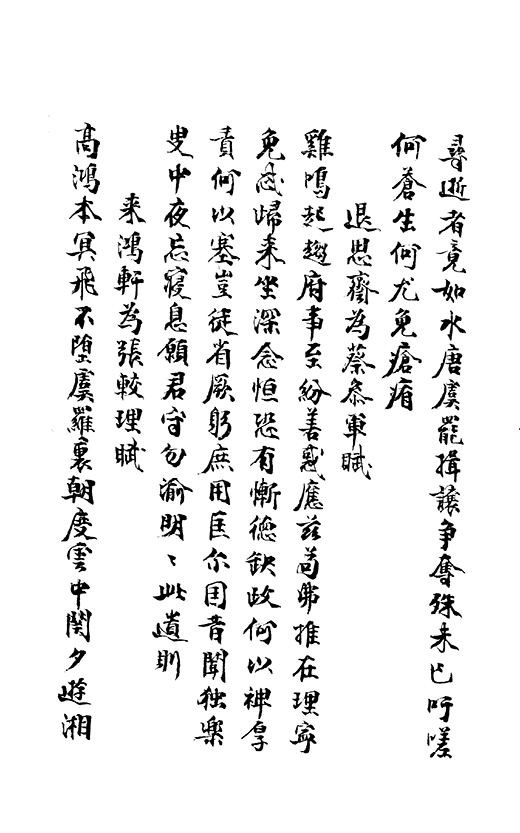 尋逝者竟如水唐虞罷揖讓争奪殊未已吁嗟
何蒼生何尤免瘡痏
退思齋為蔡叅軍賦
雞鳴起趨府事至紛善惑應兹苟弗推在理寧
免惑歸来坐深念恒恐有慚德缺政何以神厚
責何以塞豈徒省厥躬庶用匡尔国昔聞独樂
叟中夜忘寝息願君守勿渝明〻此遺則
来鴻軒為張較理賦
高鴻本冥飛不墮虞羅裏朝度雲中関夕遊湘